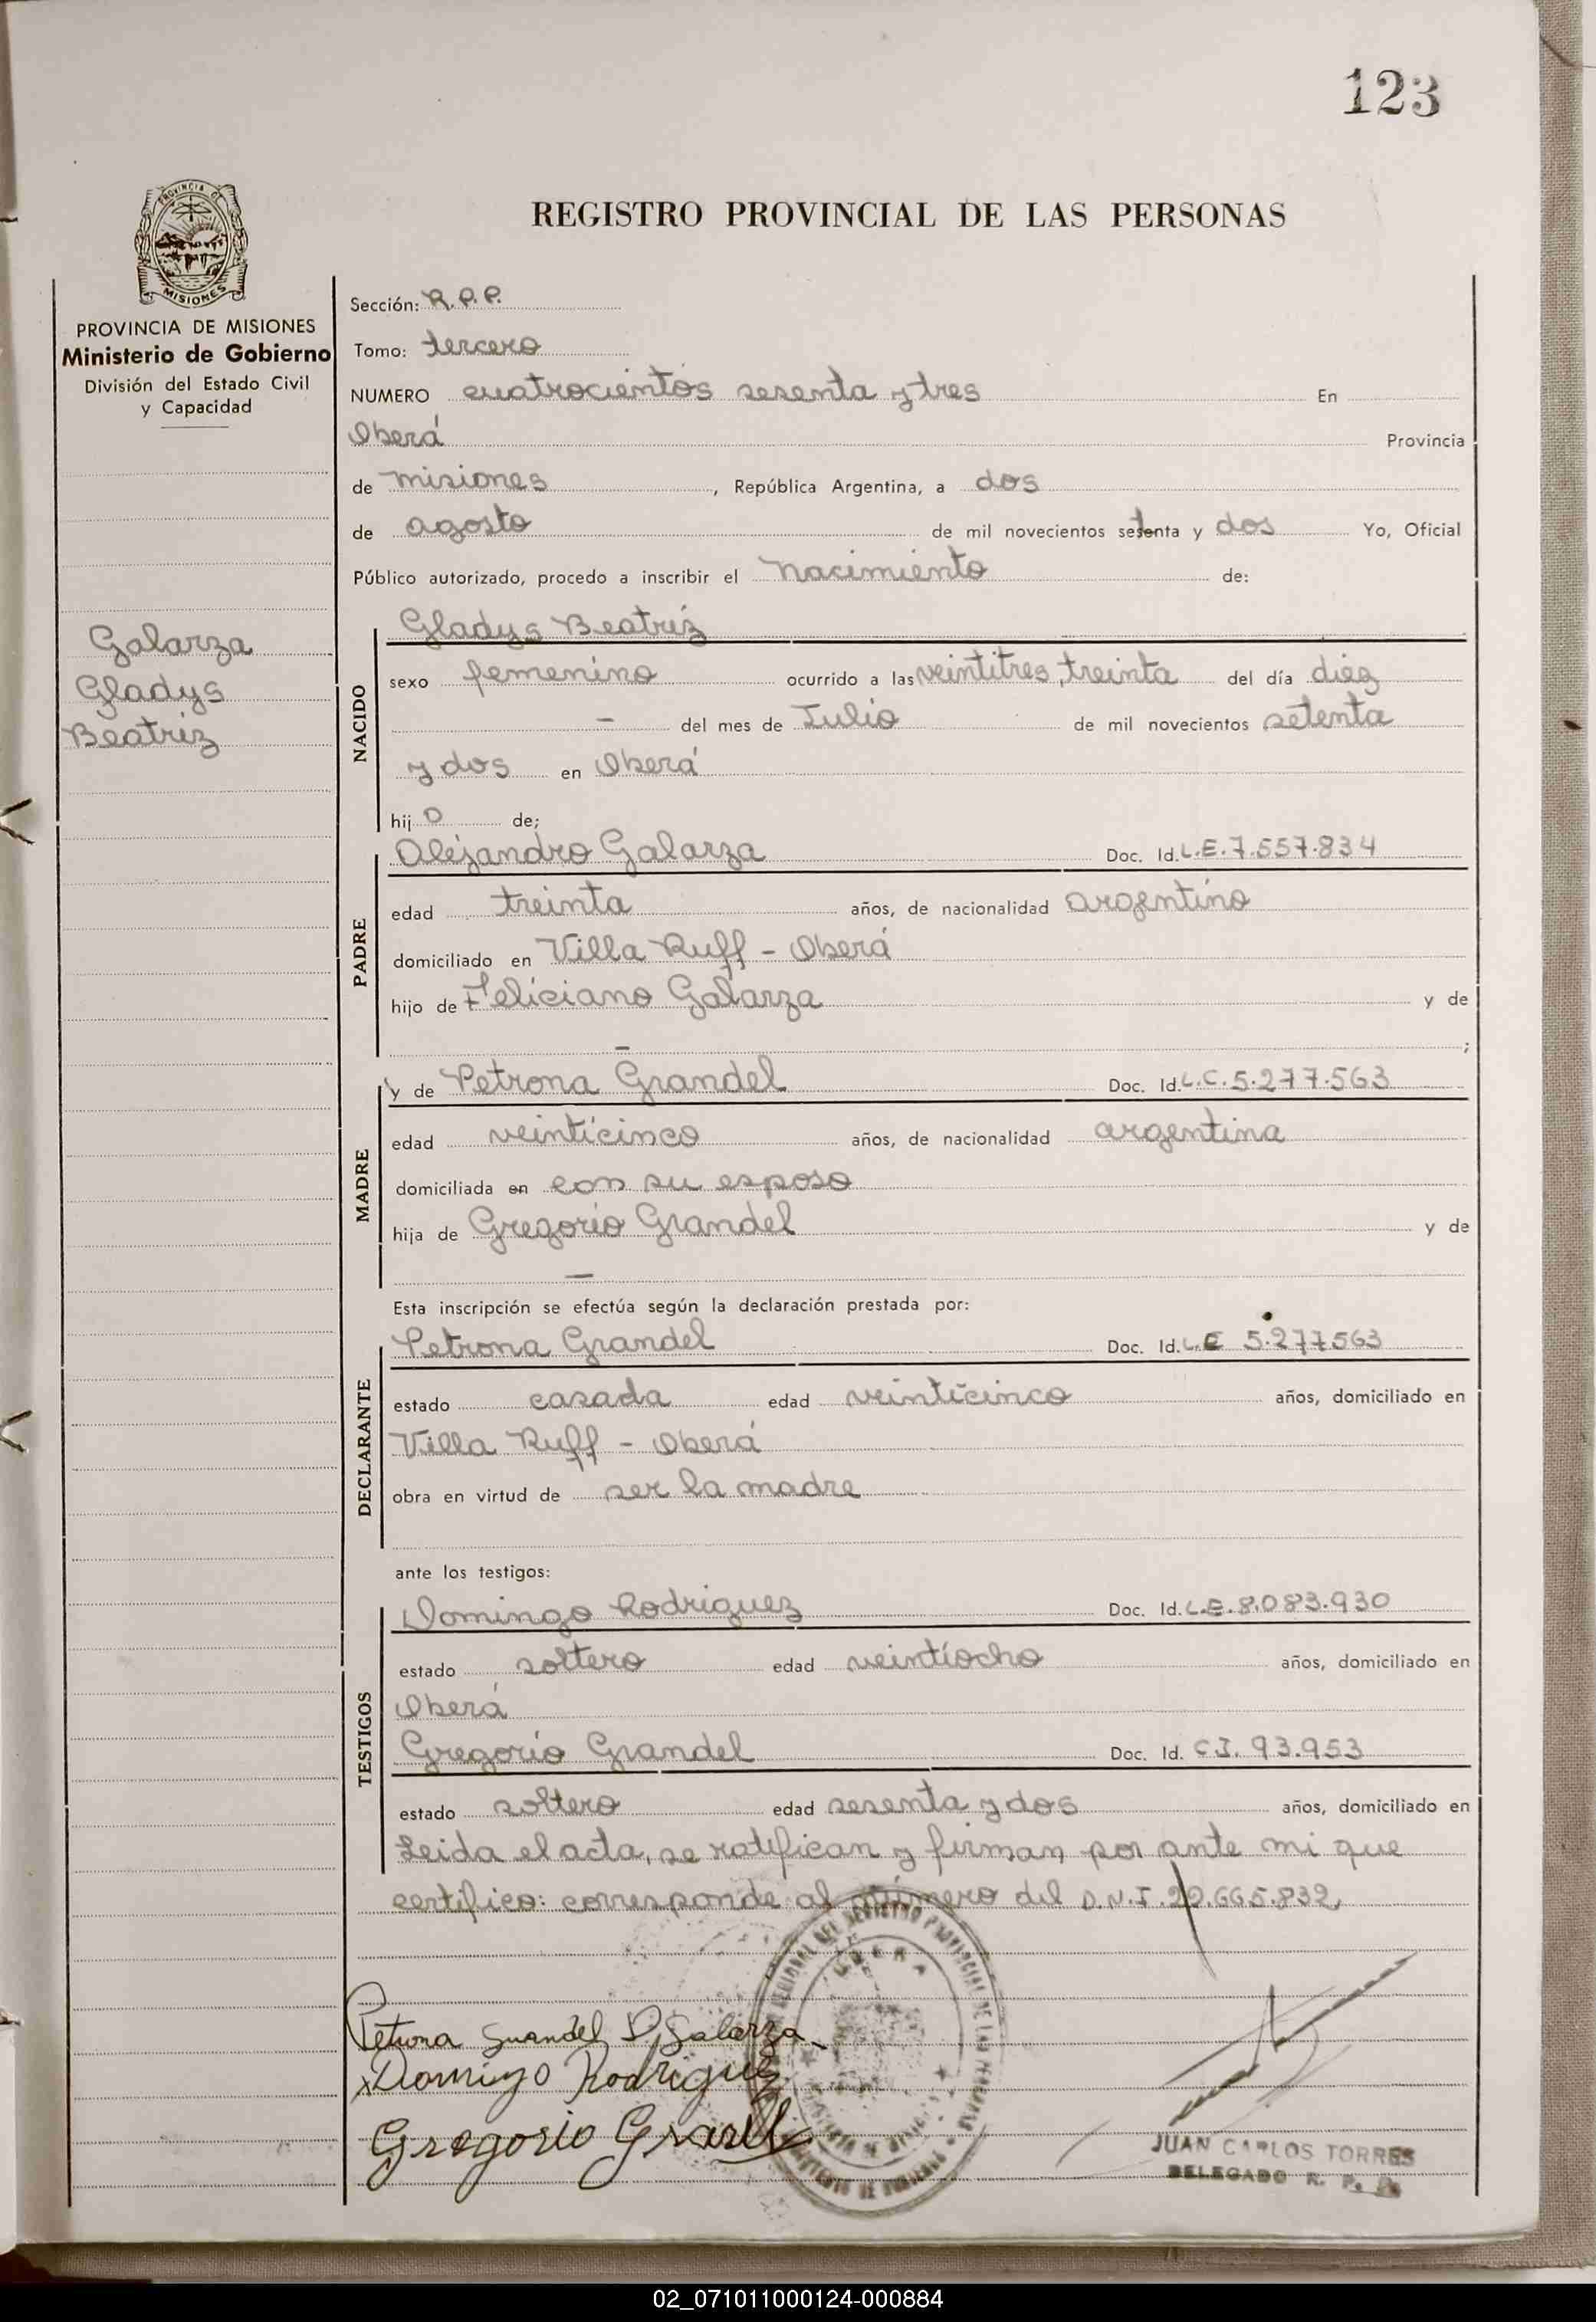 123
PROVINCIA DE
MISIONES
REGISTRO PROVINCIAL DE LAS PERSONAS
PROVINCIA DE MISIONES
Ministerio de Gobierno
División del Estado Civil
y Capacidad
Galarza
Gladys
Beatriz
Sección: R.P.P.
Tomo: tercero
NUMERO cuatrocientos sesenta y tres En
Oberá Provincia
de misiones, República Argentina, a dos
de agosto de mil novecientos setenta y dos Yo, Oficial
Público autorizado, procedo a inscribir el nacimiento de:
NACIDO
Gladys Beatriz
sexo femenino ocurrido a las veintitres, treinta del día diez
— del mes de Julio de mil novecientos setenta
y dos en Oberá
hij o de;
PADRE
Alejandro Galarza Doc. Id. L.E. 7.557.834
edad treinta años, de nacionalidad argentino
domiciliado en Villa Ruff - Oberá
hijo de Feliciano Galarza y de
— ;
MADRE
y de Petrona Grandel Doc. Id. L.C. 5.277.563
edad veinticinco años, de nacionalidad argentina
domiciliada en con su esposo
hija de Gregorio Grandel y de
—
Esta inscripción se efectúa según la declaración prestada por:
DECLARANTE
Petrona Grandel Doc. Id. L.C 5.277563
estado casada edad veinticinco años, domiciliado en
Villa Ruff - Oberá
obra en virtud de ser la madre
ante los testigos:
TESTIGOS
Domingo Rodriguez Doc. Id. L.E. 8.083.930
estado soltero edad veintiocho años, domiciliado en
Oberá
Gregorio Grandel Doc. Id. C.I. 93.953
estado soltero edad sesenta y dos años, domiciliado en
Leida el acta, se ratifican y firman por ante mi que
certifico: corresponde al número del D.N.I. 22.665.832
Petrona Grandel D. Galarza
Domingo Rodriguez
Gregorio
JUAN CARLOS TORRES
DELEGADO R. P.
02_071011000124-000884